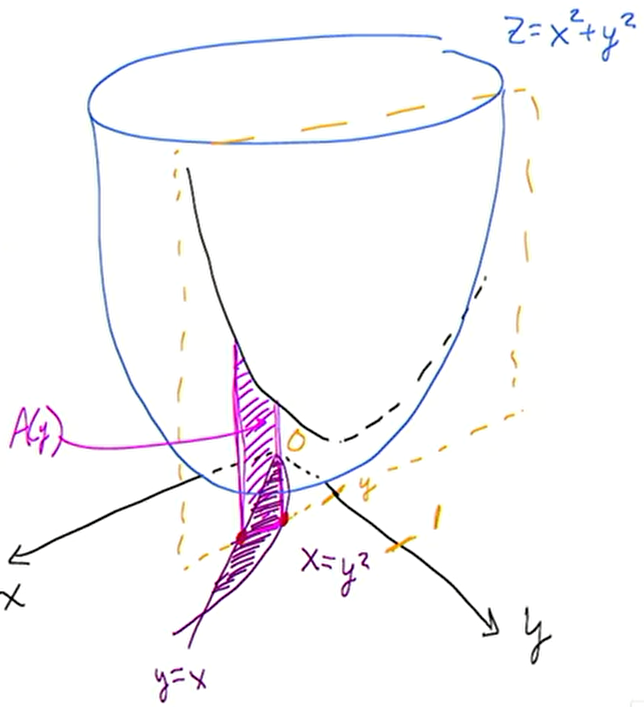 z=x²+y²
A(y)
0
y
1
x=y²
x
y
y=x